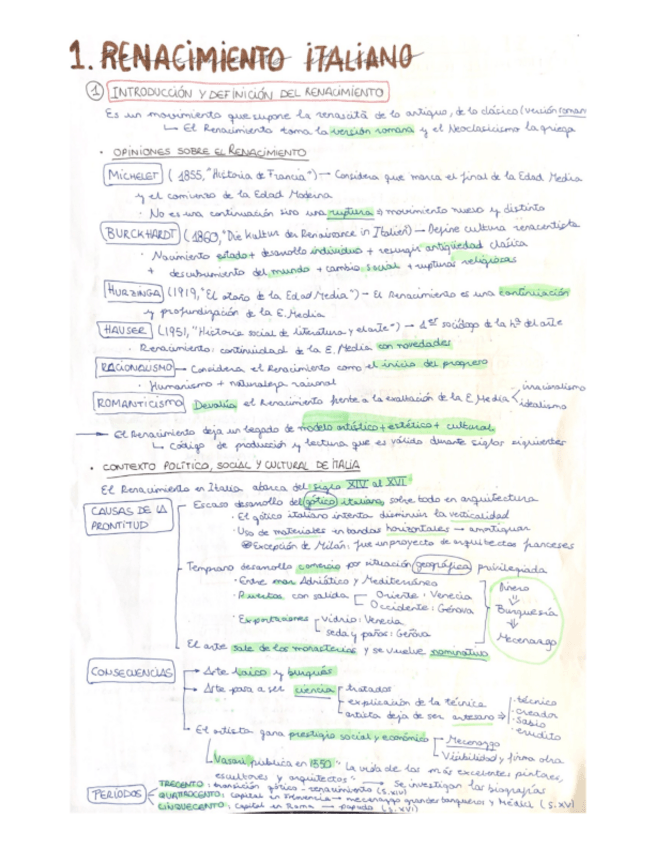 1. RENACIMIENTO ITALIANO
1 INTRODUCCIÓN Y DEFINICIÓN DEL RENACIMIENTO
Es un movimiento que supone la renascità de lo antiguo, de lo clásico (versión roman
↳ El Renacimiento toma la versión romana y el Neoclasicismo la griega
· OPINIONES SOBRE EL RENACIMIENTO
MICHELET (1855, "Historia de Francia") → Considera que marca el final de la Edad Media
y el comienzo de la Edad Moderna
· No es una continuación sino una ruptura ⇒ movimiento nuevo y distinto
BURCKHARDT (1860, "Die kultur der Renaissance in Italien") → Define cultura renacentista
· Nacimiento estado + desarrollo individuo + resurgir antigüedad clásica
+ descubrimiento del mundo + cambio social + rupturas religiosas
HUIZINGA (1919, "El otoño de la Edad Media") → El Renacimiento es una continuación
y profundización de la E. Media
HAUSER (1951, "Historia social de literatura y el arte") → 1er sociólogo de la hª del arte
· Renacimiento: continuidad de la E. Media con novedades
RACIONALISMO → Considera el Renacimiento como el inicio del progreso
· Humanismo + naturaleza racional
ROMANTICISMO Devalúa el Renacimiento frente a la exaltación de la E. Media < irracionalismo
idealismo
→ El Renacimiento deja un legado de modelo artístico + estético + cultural
↳ Código de producción y lectura que es válido durante siglos siguientes
· CONTEXTO POLÍTICO, SOCIAL Y CULTURAL DE ITALIA
El Renacimiento en Italia abarca del siglo XIV al XVI
CAUSAS DE LA PRONTITUD
Escaso desarrollo del gótico italiano, sobre todo en arquitectura
· El gótico italiano intenta disminuir la verticalidad
· Uso de materiales en bandas horizontales → amortiguar
Excepción de Milán: fue un proyecto de arquitectos franceses
Temprano desarrollo comercio por situación geográfica privilegiada
· Entre mar Adriático y Mediterráneo
· Puertos con salida Oriente: Venecia
Occidente: Génova
· Exportaciones vidrio: Venecia
seda y paños: Génova
Dinero
⇓
Burguesía
⇓
Mecenazgo
El arte sale de los monasterios y se vuelve nominativo
CONSECUENCIAS
→ Arte laico y burgués
→ Arte pasa a ser ciencia tratados
explicación de la técnica
artista deja de ser artesano ⇒ · técnico
· creador
· sabio
· erudito
El artista gana prestigio social y económico Mecenazgo
Visibilidad y firma obra
↳ Vasari publica en 1550 "La vida de los más excelentes pintores,
escultores y arquitectos" → Se investigan las biografías
PERÍODOS
TRECENTO: transición gótico - renacimiento (s. XIV)
QUATTROCENTO: capital en Florencia → mecenazgo grandes banqueros y Médici (s. XV)
CINQUECENTO: capital en Roma → papado (s. XVI)